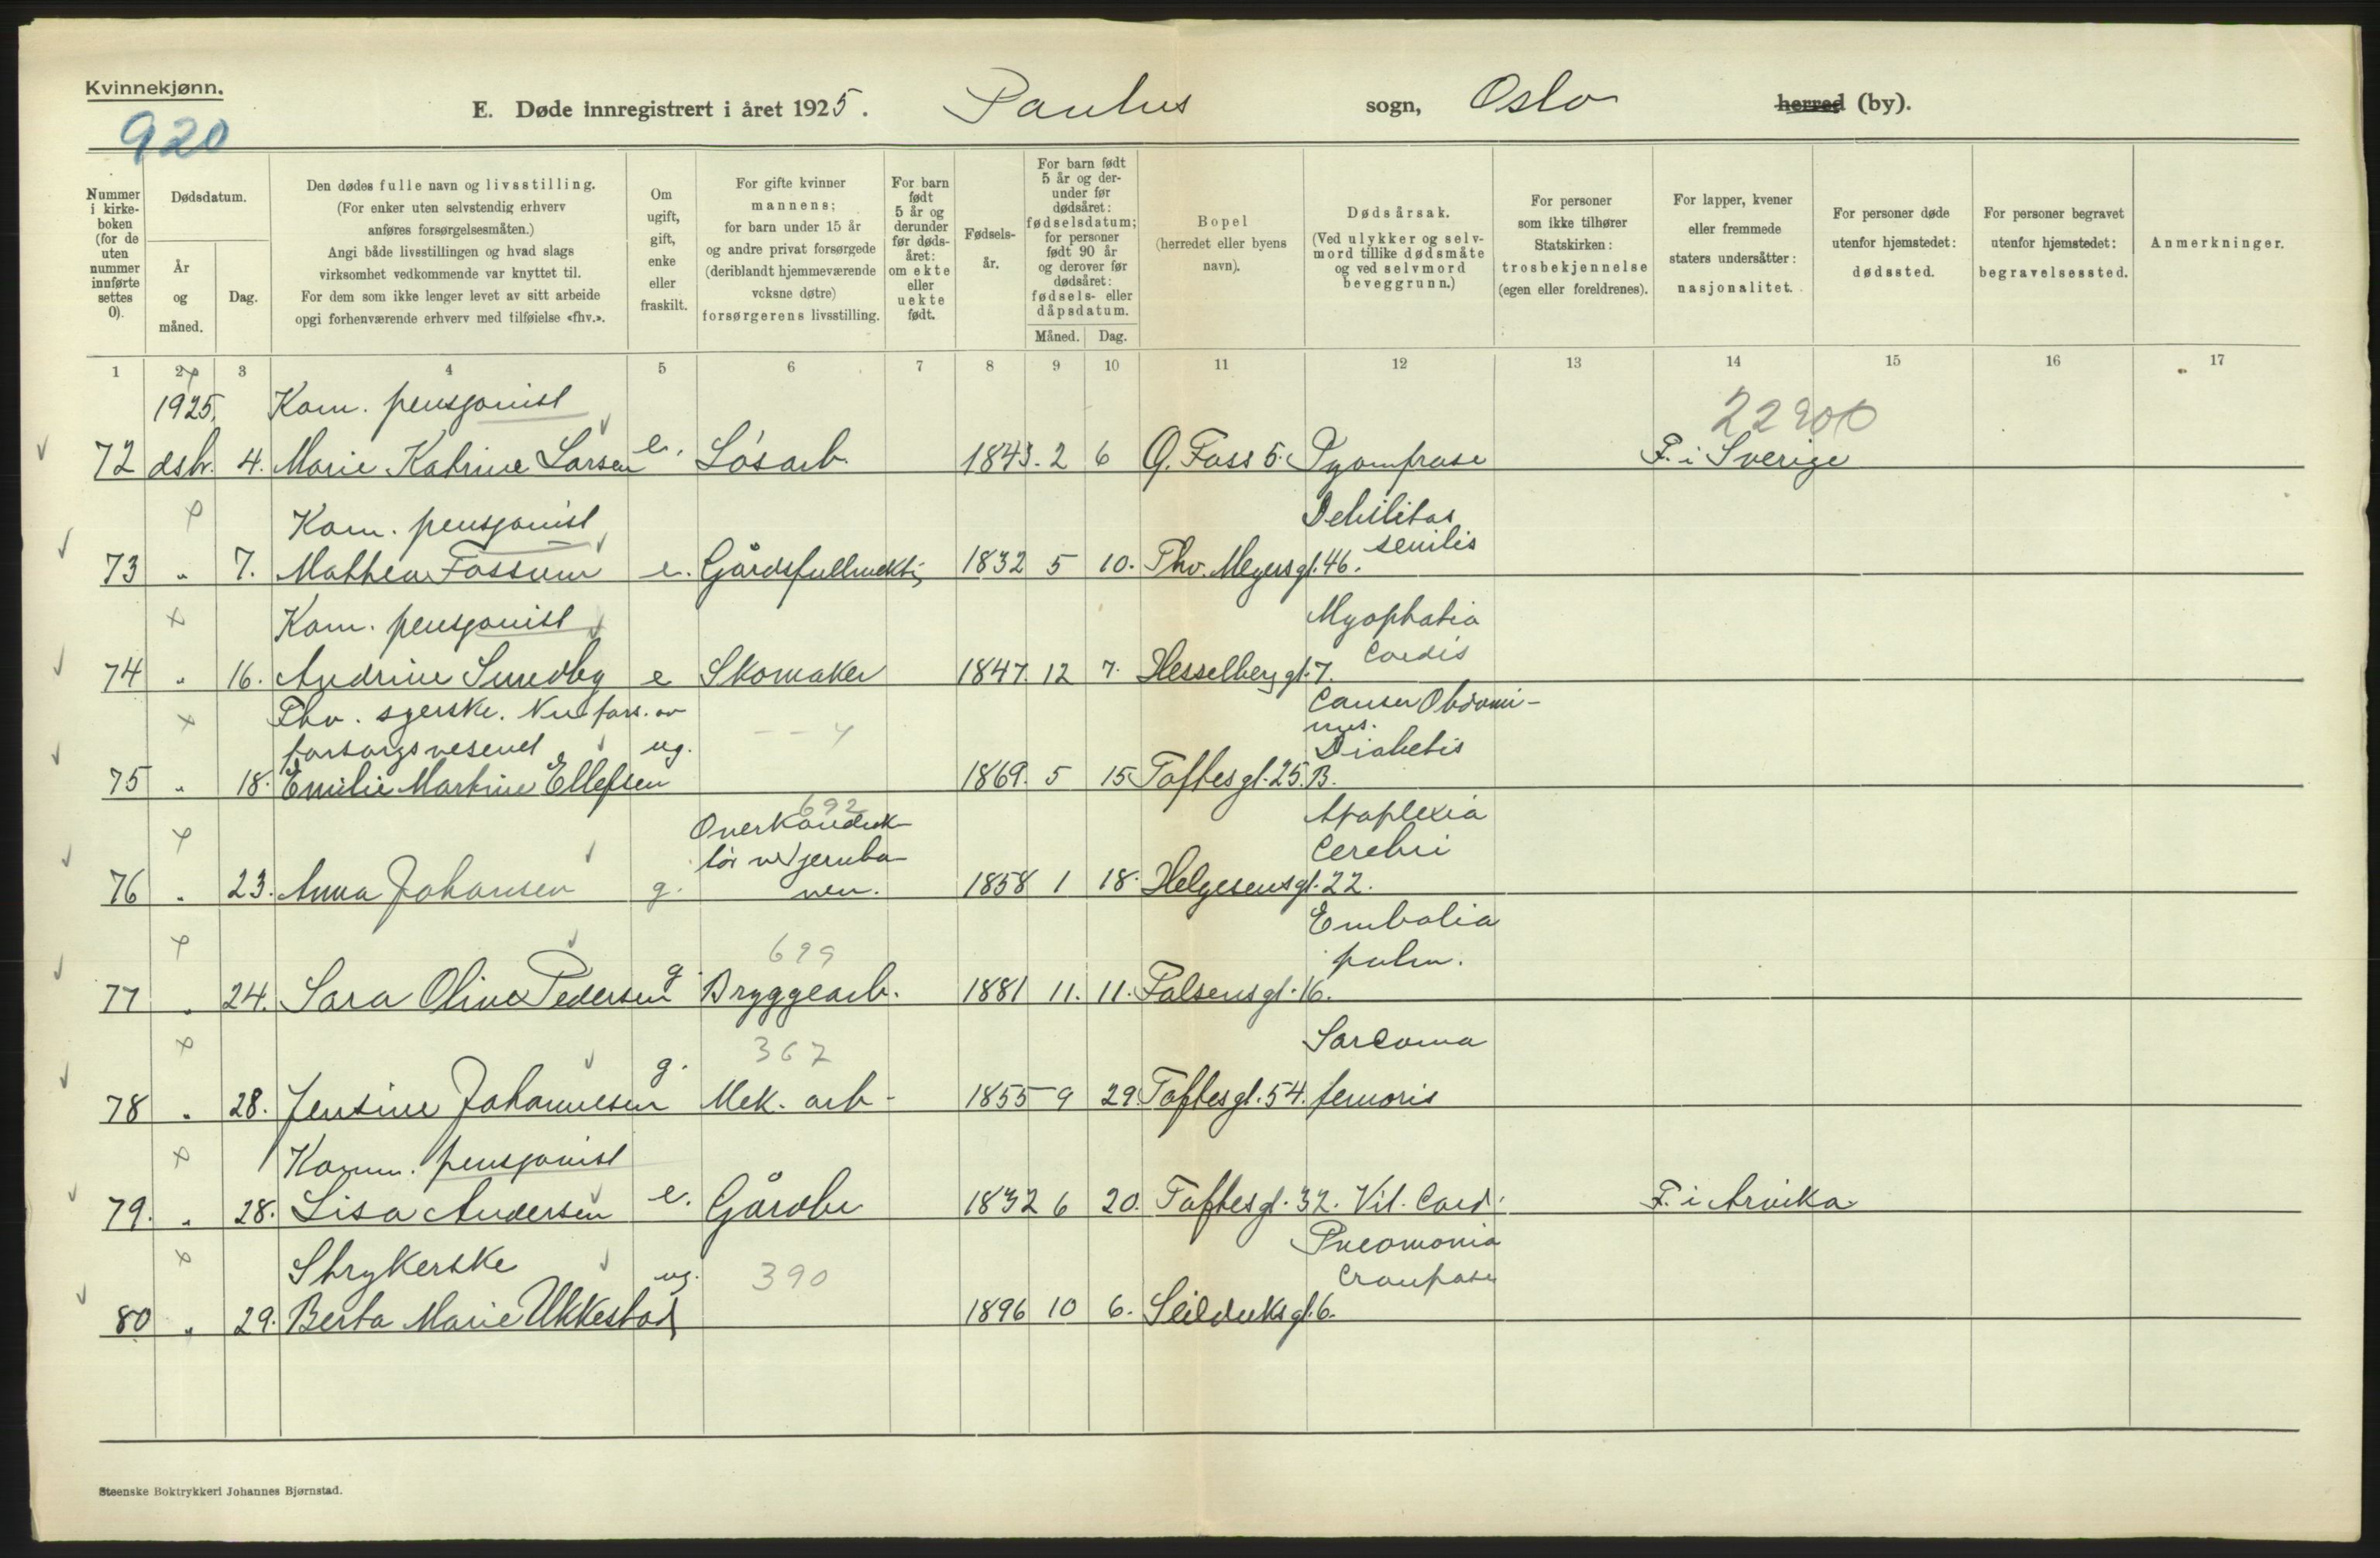 Kvinnekjønn.
920
E. Døde innregistrert i året 1925. Paulus sogn, Oslo herred (by).
Nummer i kirke-boken (for de uten nummer innførte settes 0).
Dødsdatum.
År og måned.
Dag.
Den dødes fulle navn og livsstilling.
(For enker uten selvstendig erhverv
anføres forsørgelsesmåten.)
Angi både livsstillingen og hvad slags
virksomhet vedkommende var knyttet til.
For dem som ikke lenger levet av sitt arbeide
opgi forhenværende erhverv med tilføielse «fhv.».
Om ugift, gift, enke eller fraskilt.
For gifte kvinner
mannens;
for barn under 15 år
og andre privat forsørgede
(deriblandt hjemmeværende
voksne døtre)
forsørgerens livsstilling.
For barn født 5 år og derunder før døds-året: om ekte eller uekte født.
Fødsels-år.
For barn født 5 år og der-under før dødsåret: fødselsdatum; for personer født 90 år og derover før dødsåret: fødsels- eller dåpsdatum.
Måned. Dag.
Bopel
(herredet eller byens
navn).
Dødsårsak.
(Ved ulykker og selv-
mord tillike dødsmåte
og ved selvmord
beveggrunn.)
For personer
som ikke tilhører
Statskirken:
trosbekjennelse
(egen eller foreldrenes).
For lapper, kvener
eller fremmede
staters undersåtter:
nasjonalitet.
For personer døde
utenfor hjemstedet:
dødssted.
For personer begravet
utenfor hjemstedet:
begravelsessted.
Anmerkninger.
1 2 3 4 5 6 7 8 9 10 11 12 13 14 15 16 17
1925. Kom. pensjonist 22900
72 dsbr. 4. Marie Katrine Larsen e. Løsarb. 1843. 2 6 F. i Sverige
Kom. pensjonist Debilitas senilis
73 " 7. Mathea Fossum e. Gårdsfullmektig 1832 5 10. Thv. Meyersgt. 46.
Kom. pensjonist Myophatia Cordis
74 " 16. Andrine Sundby e Skomaker 1847. 12 7. Hesselberggt. 7.
Fhv. syerske. Nu fors. av Cancer Abdomi-
nus.
forsorgsvesenet ug. Diabetis
75 " 18. Emilie Martine Ellefsen 1869. 5 15 Toftesgt. 25.B.
692
Overkonduk- Apoplexia
tør v/ jernba- Cerebri
76 " 23. Anna Johansen g. nen. 1858 1 18. Helgesensgt. 22.
Embolia
699 pulm.
77 " 24. Sara Oline Pedersen g. Bryggearb. 1881 11. 11. Falsensgt. 16.
367 Sarcoma
78 " 28. Jensine Johannesen g. Mek. arb- 1855 9 29. Toftesgt. 54. femoris
Komm. pensjonist
79. " 28. Lisa Andersen e. Gårdbr 1832 6 20. Toftesgt. 32. Vit. Cord. F. i Arvika
Strykerske Pneomonia
390 Croupose
80 " 29. Berta Marie Ukkestad ug. 1896 10 6. Seilduksgt. 6.
Steenske Boktrykkeri Johannes Bjørnstad.